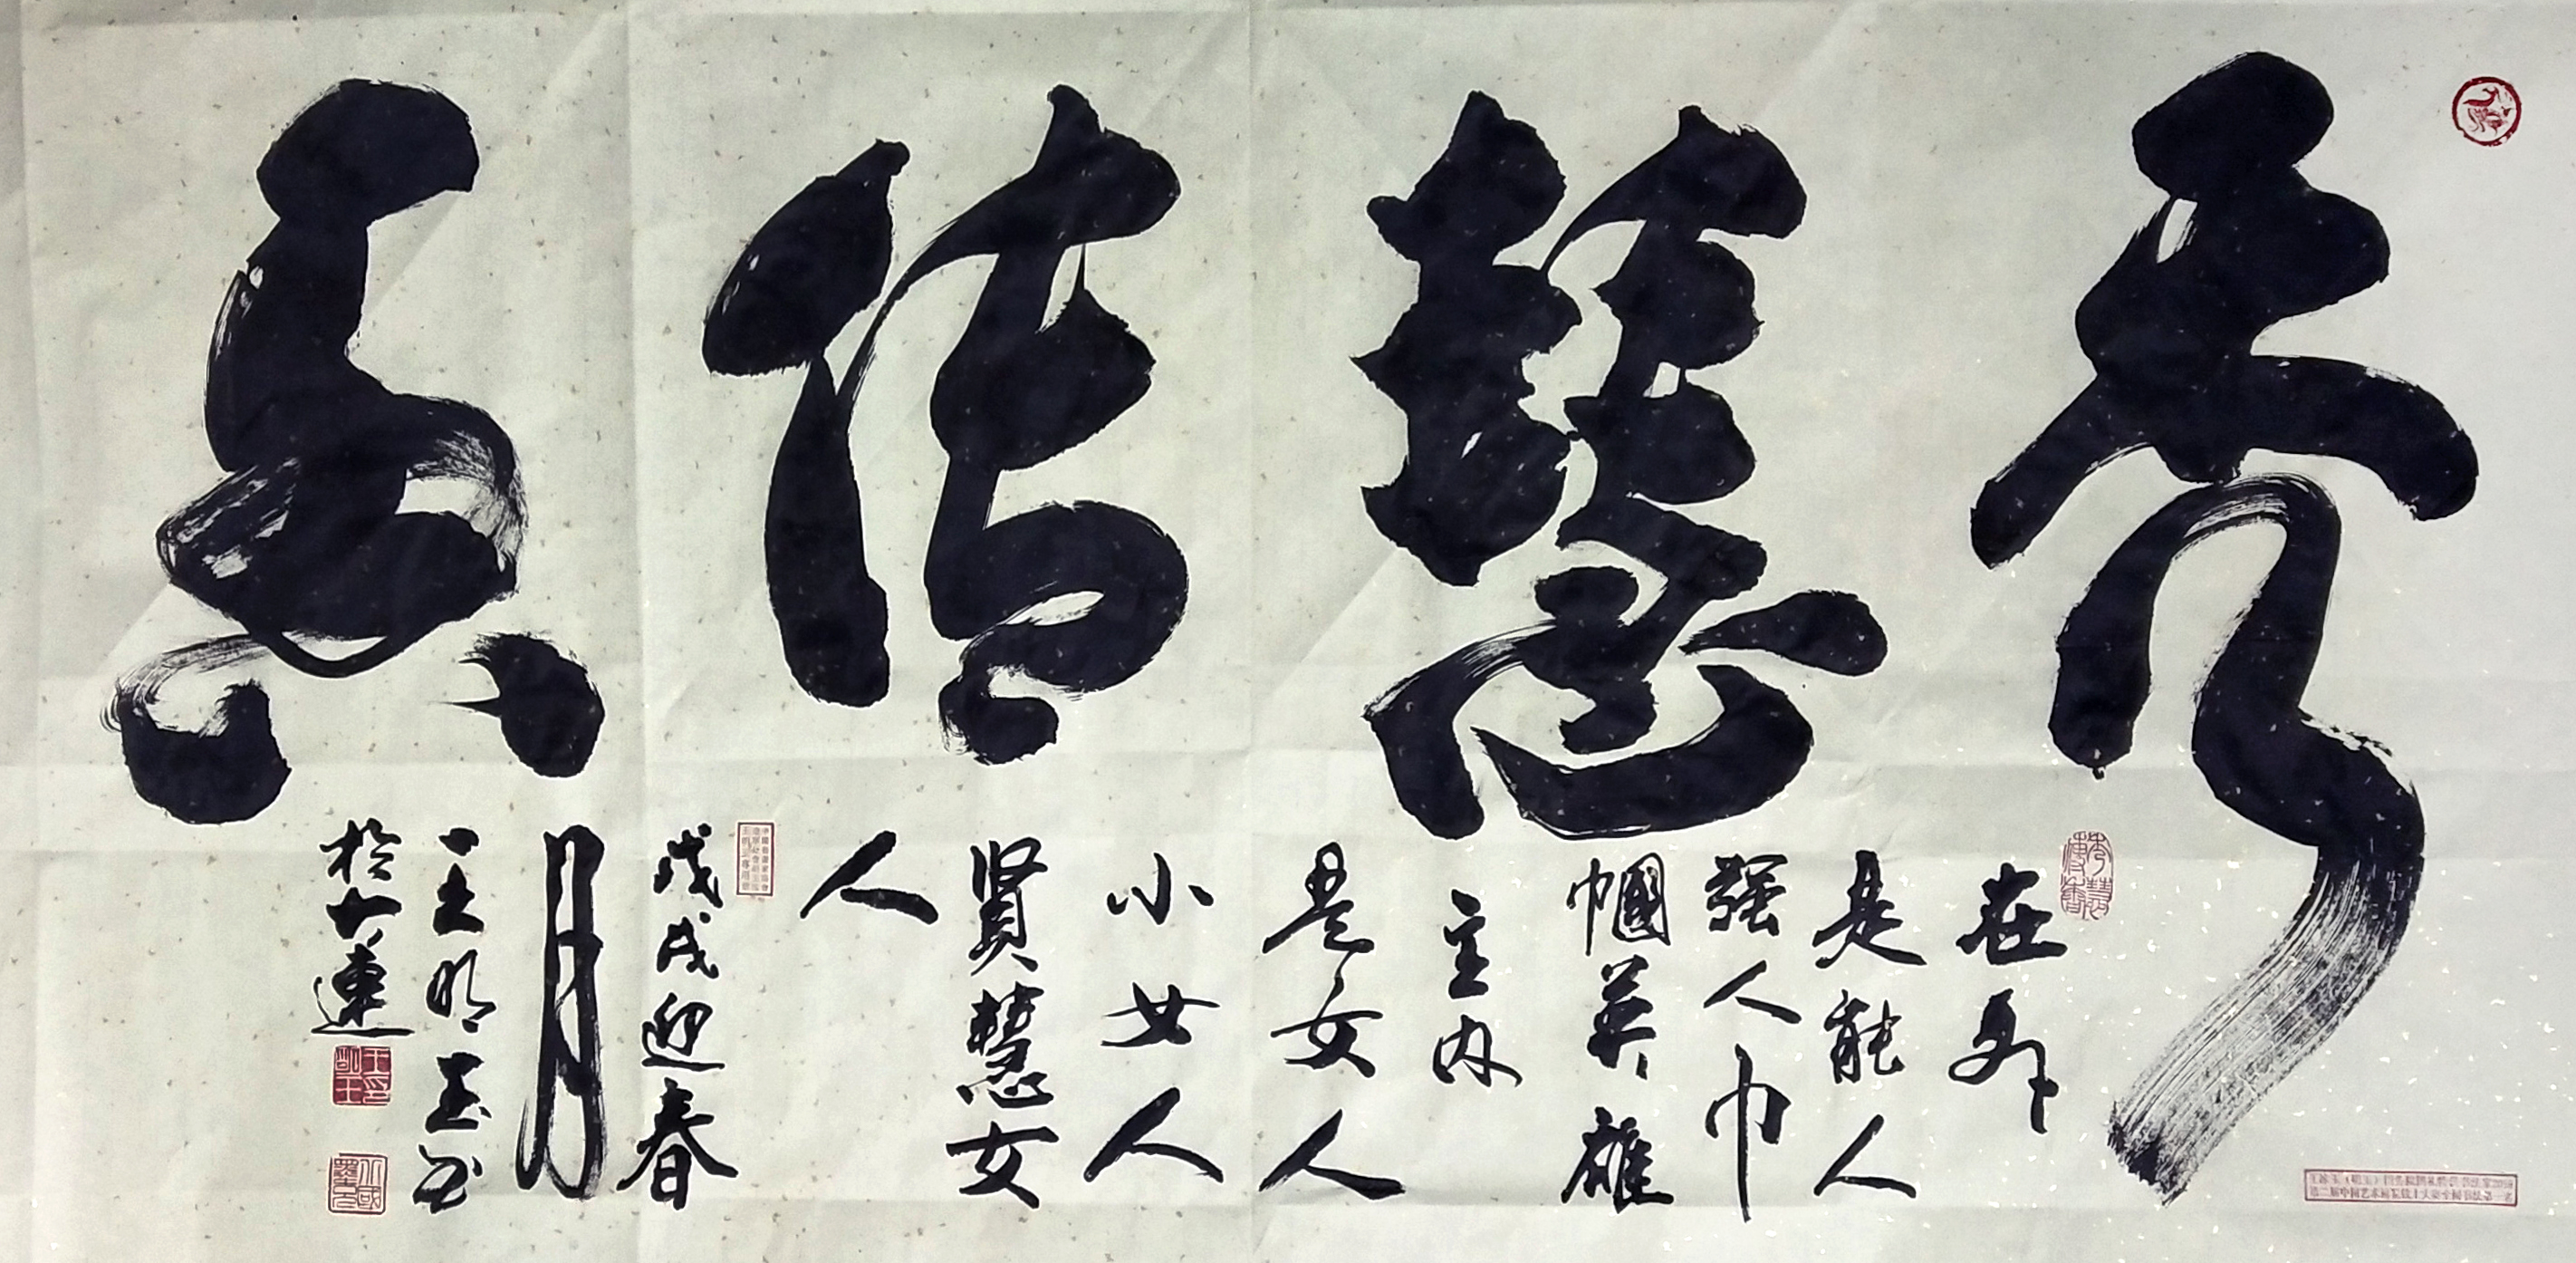 秀慧传香
在外
是能人
强人巾
幗英雄
主内
是女人
小女人
賢慧女
人
戊戌迎春
月
王明玉书
於大連